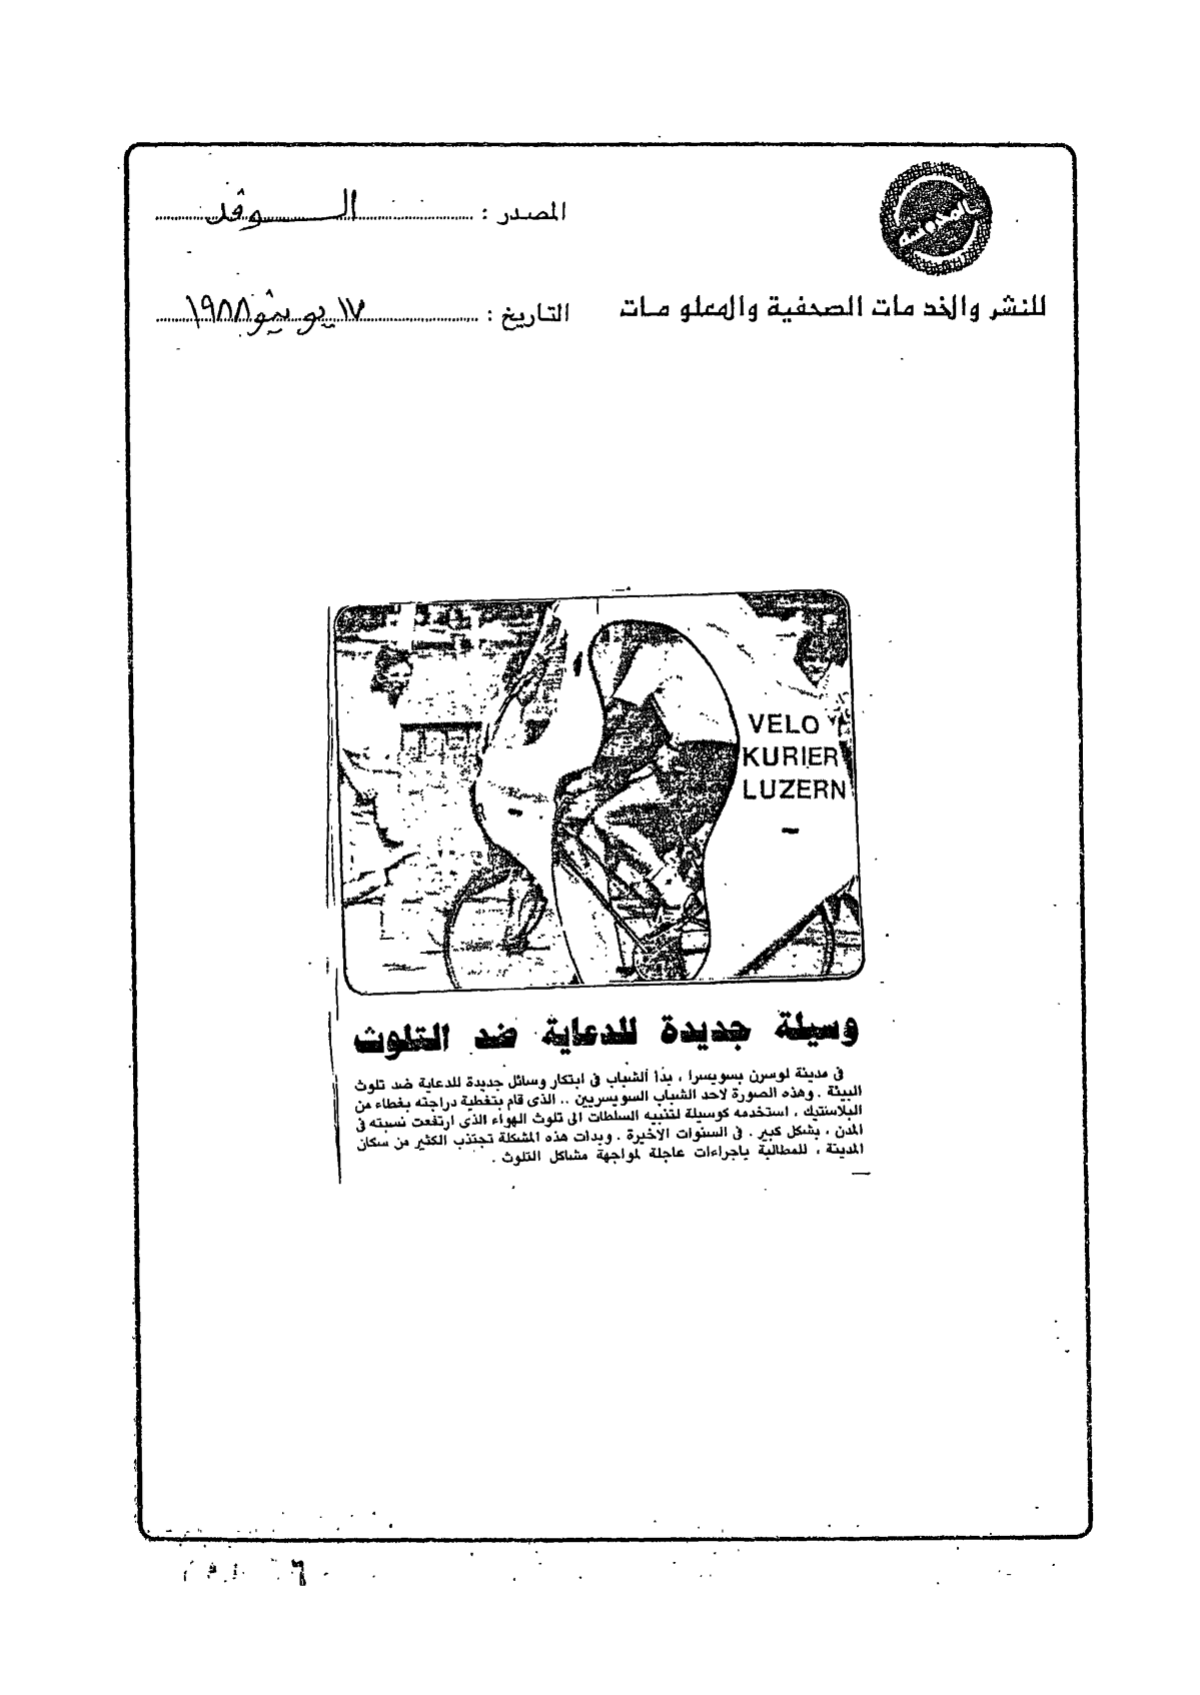 المصدر : الوفد
للنشر والخدمات الصحفية والمعلومات
التاريخ : ١٧ يونيو ١٩٨٨
VELO
KURIER
LUZERN
وسيلة جديدة للدعاية ضد التلوث
فى مدينة لوسرن بسويسرا ، بدأ الشباب فى ابتكار وسائل جديدة للدعاية ضد تلوث
البيئة . وهذه الصورة لاحد الشباب السويسريين .. الذى قام بتغطية دراجته بغطاء من
البلاستيك ، استخدمه كوسيلة لتنبيه السلطات الى تلوث الهواء الذى ارتفعت نسبته فى
المدن ، بشكل كبير . فى السنوات الاخيرة . وبدات هذه المشكلة تجتذب الكثير من سكان
المدينة ، للمطالبة باجراءات عاجلة لمواجهة مشاكل التلوث .